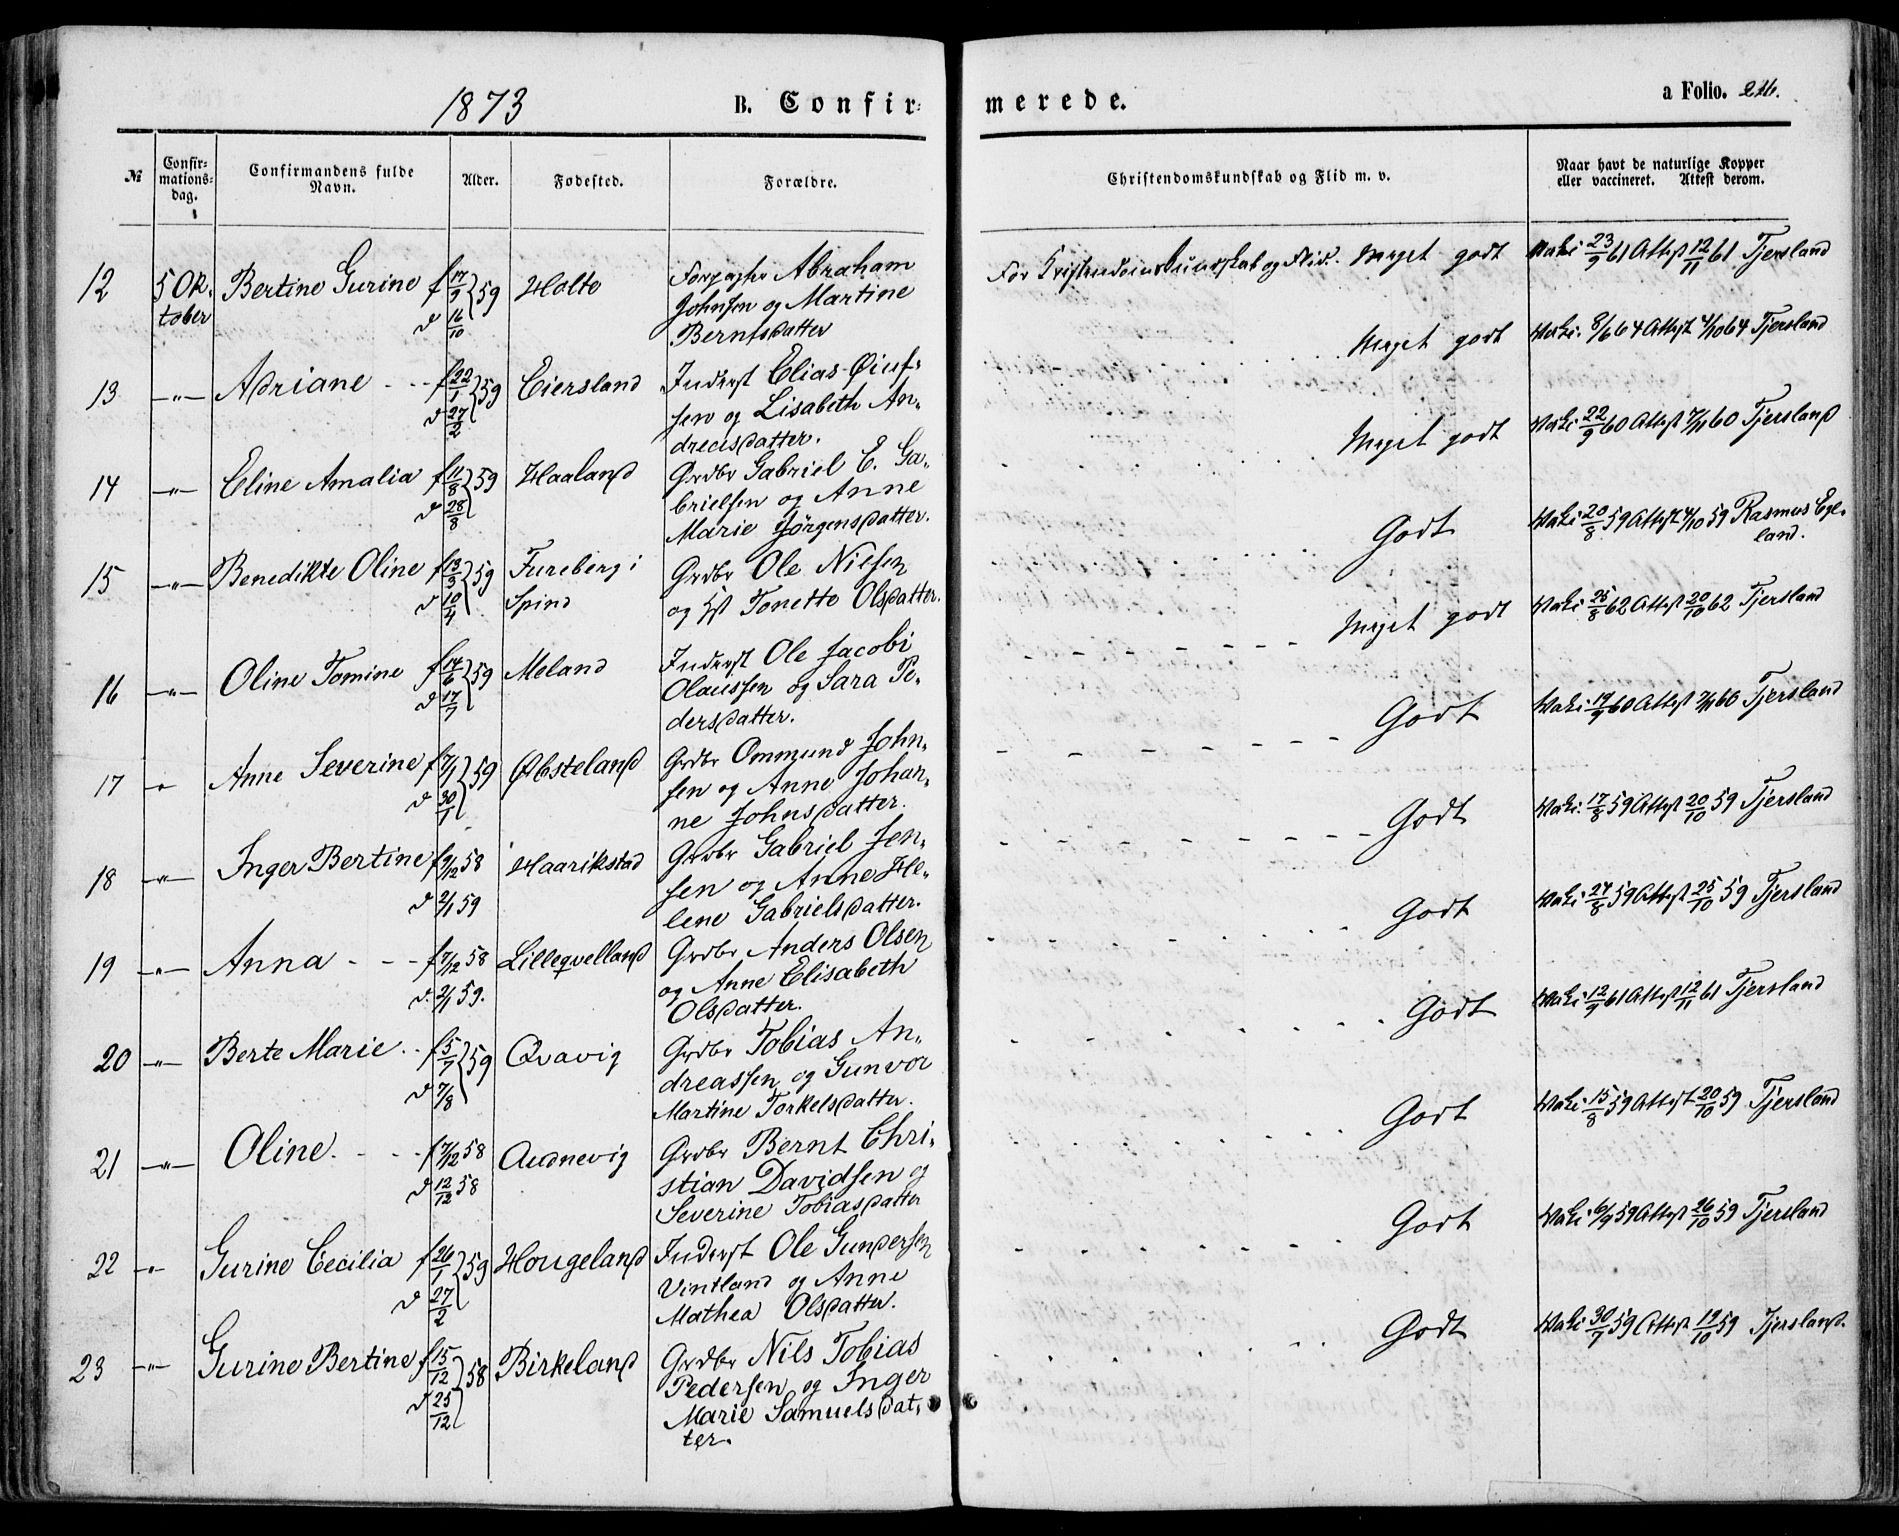 1873 B. Confirmerede. a Folio. 226.
№ Confirmationsdag. Confirmandens fulde Navn. Alder. Fødested. Forældre. Christendomskundskab og Flid m. v. Naar havt de naturlige Kopper eller vaccineret. Attest derom.
12 5 Oktober Bertine Gurine f 17/9 d 16/10 }59 Holte
Forpagter Abraham
Johnsen og Martine
Berntsdatter
For Kristendomskundskab og Flid. Meget godt Vaki 23/9 61 Attest 12/11 61 Tjersland
13 —„— Adriane - - - f 22/1 d 27/2 }59 Eiersland
Inderst Elias
sen og Lisabeth An-
dreasdatter.
Meget godt Vaki. 8/6 64 Attest 4/10 64 Tjersland
14 —„— Eline Amalia f 11/8 d 28/8 }59 Haaland
Grdbr Gabriel E. Ga-
brielsen og Anne
Marie Jørgensdatter.
Meget godt Vaki 22/9 60 Attest 7/11 60 Tjersland
15 —„— Benedikte Oline f 13/3 d 10/4 }59 Fureberg i
Spind
Grdbr Ole Nielsen
og Hst Tonette Olsdatter.
Godt Vaki 20/8 59 Attest 4/10 59 Rasmus Ege-
land.
16 —„— Oline Tomine f 14/6 d 17/7 }59 Meland
Inderst Ole Jacobi
Olaussen og Sara Pe-
dersdatter.
Meget godt Vaki 25/8 62 Attest 20/10 62 Tjersland
17 „ Anne Severine f 7/1 d 30/1 }59 Øbsteland
Grdbr Ommund John-
sen og Anne Johan-
ne Johnsdatter.
Godt Vaki 19/9 60 Attest 7/11 60 Tjersland
18 —„— Inger Bertine f 9/12 58 Haarikstad
d 2/1 59
Grdbr Gabriel Jen-
sen og Anne He-
lene Gabrielsdatter.
Godt Vaki 17/8 59 Attest 20/10 59 Tjersland
19 —„— Anna - - - f 7/12 58 Lilleqvelland
d. 2/1 59.
Grdbr Anders Olsen
og Anne Elisabeth
Olsdatter.
Godt Vaki 24/8 59 Attest 25/10 59 Tjersland
20 —„— Berte Marie - - f 5/7 d 7/8 }59 Qvavig
Grdbr Tobias An-
dreassen og Gunvor
Martine Torkelsdatter.
Godt Vaki 12/9 61 Attest 12/11 61 Tjersland
21 —„— Oline. - - - f 7/12 58 Audnevig
d 12/12 58
Grdbr Bernt Chri-
stian Davidsen og
Severine Tobiasdatter
Godt Vaki 15/8 59 Attest 20/10 59 Tjersland
22 —„— Gurine Cecilia f 26/1 d 27/2 }59 Hougeland
Inderst Ole Gundersen
Vintland og Anne
Mathea Olsdatter.
Godt Vaki 6/9 59 Attest 26/10 59 Tjersland
23 —„— Gurine Bertine f 15/12 d 25/12 }58 Birkeland
Grdbr Nils Tobias
Pedersen og Inger
Marie Samuelsdat-
ter.
Godt Vaki 30/7 59 Attest 19/10 59 Tjersland.